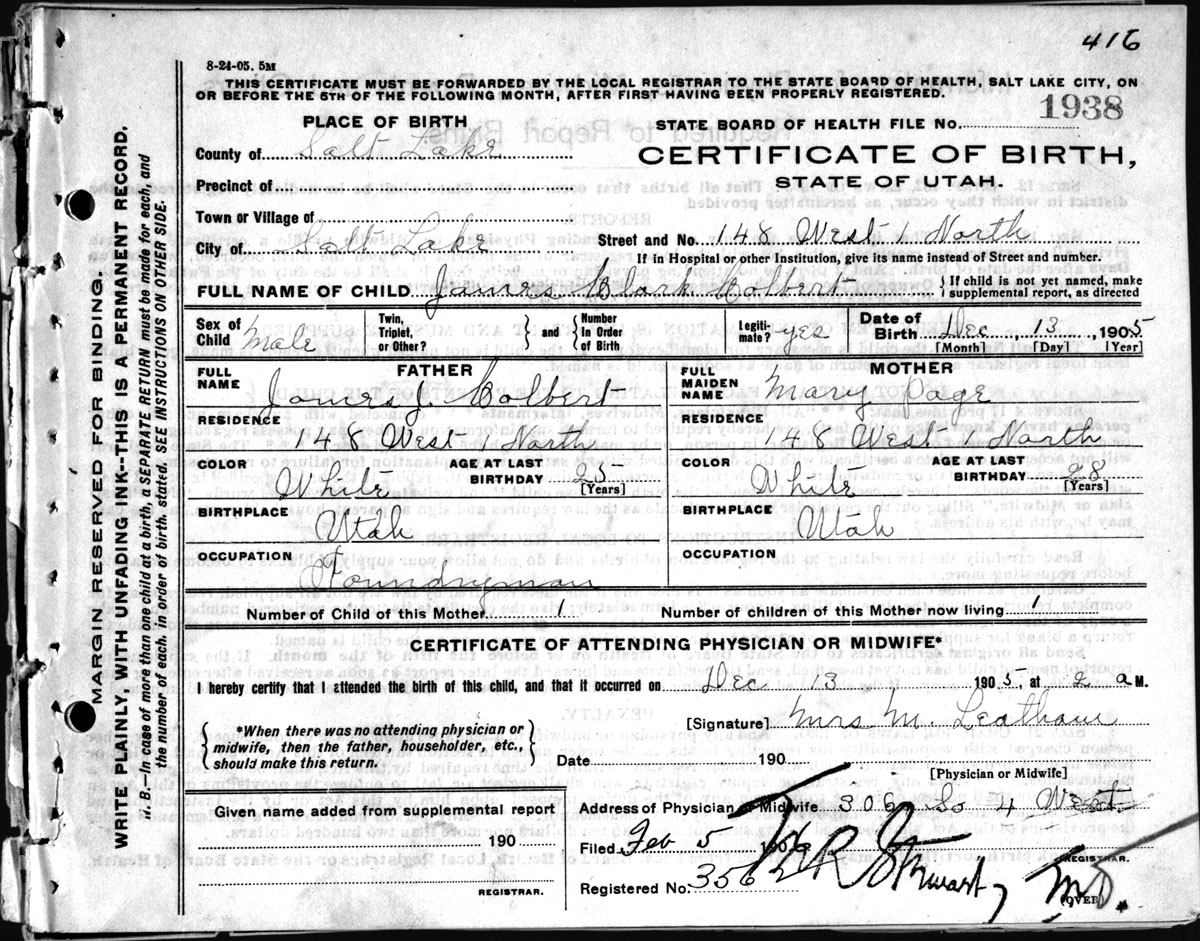 416
8-24-05. 5M
THIS CERTIFICATE MUST BE FORWARDED BY THE LOCAL REGISTRAR TO THE STATE BOARD OF HEALTH, SALT LAKE CITY, ON
OR BEFORE THE 5TH OF THE FOLLOWING MONTH, AFTER FIRST HAVING BEEN PROPERLY REGISTERED.
MARGIN RESERVED FOR BINDING.
WRITE PLAINLY, WITH UNFADING INK--THIS IS A PERMANENT RECORD.
N. B.—In case of more than one child at a birth, a SEPARATE RETURN must be made for each, and
the number of each, in order of birth, stated. SEE INSTRUCTIONS ON OTHER SIDE.
PLACE OF BIRTH
STATE BOARD OF HEALTH FILE No. 1938
County of Salt Lake
CERTIFICATE OF BIRTH,
Precinct of
STATE OF UTAH.
Town or Village of
City of Salt Lake Street and No. 148 West 1 North
If in Hospital or other Institution, give its name instead of Street and number.
FULL NAME OF CHILD James Clark Colbert } If child is not yet named, make
supplemental report, as directed
Sex of Child Male Twin, Triplet, or Other? } and { Number In Order of Birth Legiti-mate? yes Date of Birth Dec, 13, 1905
[Month] [Day] [Year]
FATHER
FULL NAME James J Colbert
RESIDENCE
148 West 1 North
COLOR White AGE AT LAST BIRTHDAY 25
[Years]
BIRTHPLACE Utah
OCCUPATION Foundryman
MOTHER
FULL MAIDEN NAME Mary Page
RESIDENCE
148 West 1 North
COLOR White AGE AT LAST BIRTHDAY 28
[Years]
BIRTHPLACE Utah
OCCUPATION
Number of Child of this Mother 1 Number of children of this Mother now living 1
CERTIFICATE OF ATTENDING PHYSICIAN OR MIDWIFE*
I hereby certify that I attended the birth of this child, and that it occurred on Dec 13 1905, at 2 a M.
{ *When there was no attending physician or
midwife, then the father, householder, etc.,
should make this return. }
[Signature] Mrs M. Leatham
Date 190
[Physician or Midwife]
Given name added from supplemental report
190
REGISTRAR.
Address of Physician or Midwife 306 So 4 West
Filed Feb 5 1906 R Stewart, M.D.
REGISTRAR.
Registered No. 356
(OVER)